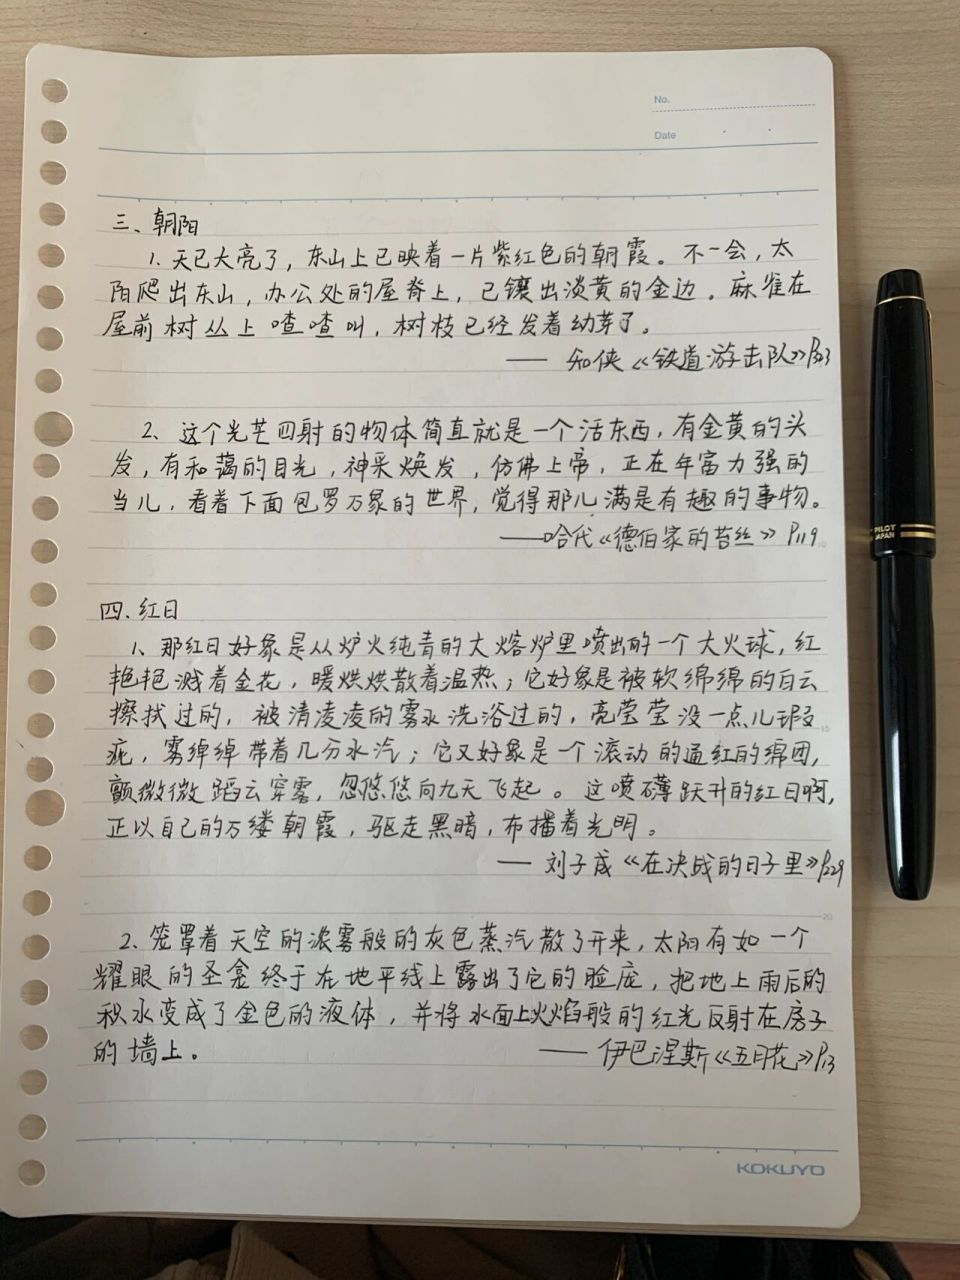 No.
Date
三、朝阳
1. 天已大亮了，东山上已映着一片紫红色的朝霞。不一会，太
阳爬出东山，办公处的屋脊上，已镶出淡黄的金边。麻雀在
屋前树丛上喳喳叫，树枝已经发着幼芽了。
—— 知侠《铁道游击队》P323
2、这个光芒四射的物体简直就是一个活东西，有金黄的头
发，有和蔼的目光，神采焕发，仿佛上帝，正在年富力强的
当儿，看着下面包罗万象的世界，觉得那儿满是有趣的事物。
——哈代《德伯家的苔丝》P119
四、红日
1、那红日好象是从炉火纯青的大熔炉里喷出的一个大火球，红
艳艳溅着金花，暖烘烘散着温热；它好象是被软绵绵的白云
擦拭过的，被清凌凌的雾水洗浴过的，亮莹莹没一点儿瑕
疵，雾绰绰带着几分水汽；它又好象是一个滚动的通红的绵团，
颤微微蹈云穿雾，忽悠悠向九天飞起。这喷礴跃升的红日啊，
正以自己的万缕朝霞，驱走黑暗，布播着光明。
—— 刘子成《在决战的日子里》P229
2、笼罩着天空的浓雾般的灰色蒸汽散了开来，太阳有如一个
耀眼的圣盒终于在地平线上露出了它的脸庞，把地上雨后的
积水变成了金色的液体，并将水面上火焰般的红光反射在房子
的墙上。
—— 伊巴涅斯《五月花》P13
KOKUYO
PILOT
JAPAN